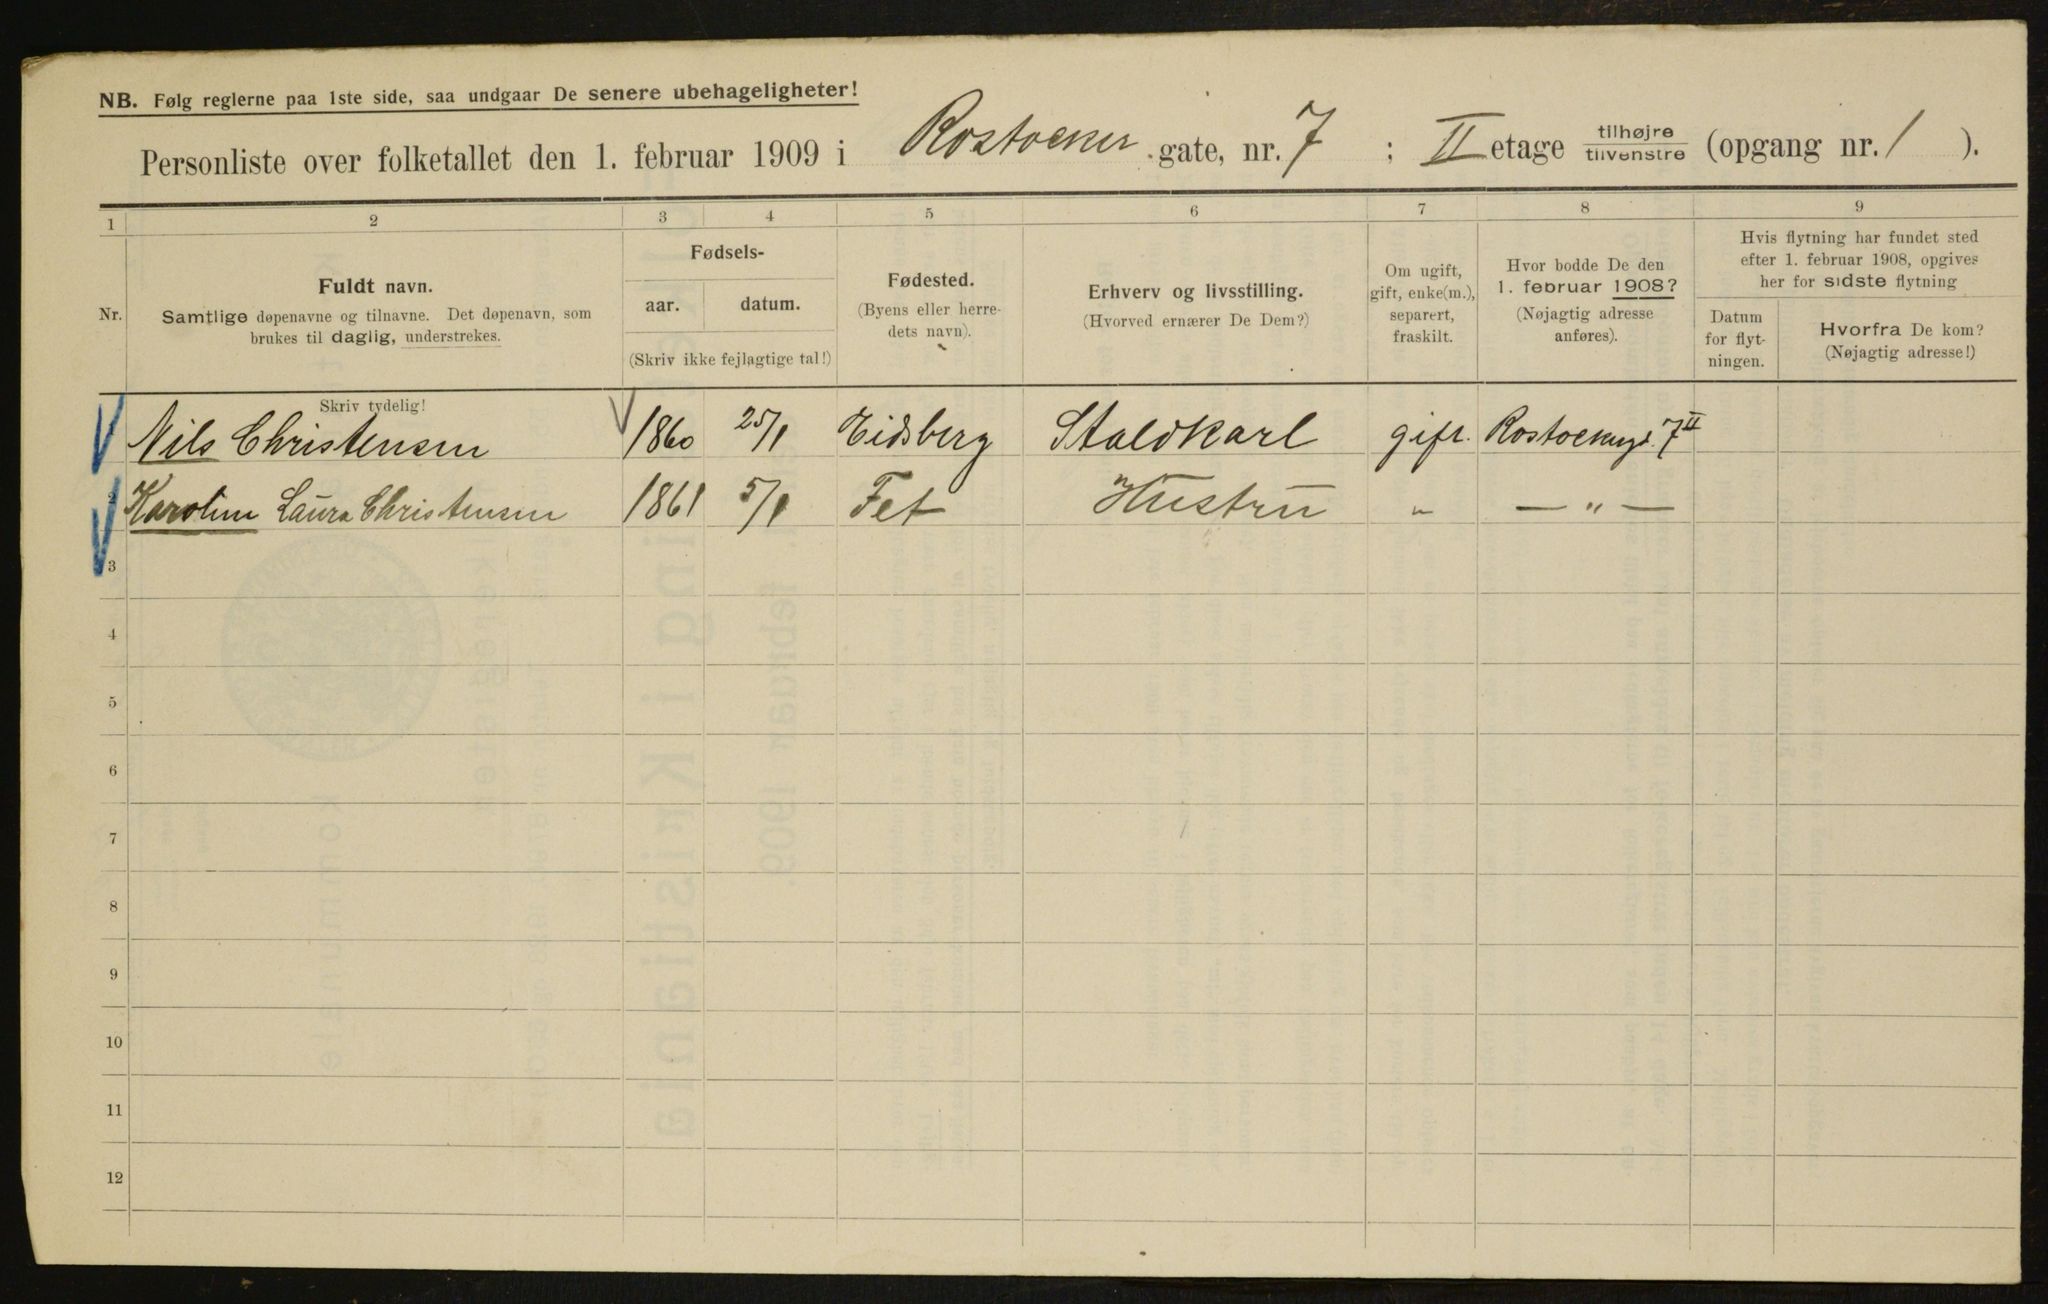 NB. Følg reglerne paa 1ste side, saa undgaar De senere ubehageligheter!
Personliste over folketallet den 1. februar 1909 i Rostocker gate, nr. 7 ; II etage tilhøjre / tilvenstre (opgang nr. 1 ).
1 2 3 4 5 6 7 8 9
Nr.
Fuldt navn.
Samtlige døpenavne og tilnavne. Det døpenavn, som
brukes til daglig, understrekes.
Skriv tydelig!
Fødsels-
aar. datum.
(Skriv ikke fejlagtige tal!)
Fødested.
(Byens eller herre-
dets navn).
Erhverv og livsstilling.
(Hvorved ernærer De Dem?)
Om ugift,
gift, enke(m.),
separert,
fraskilt.
Hvor bodde De den
1. februar 1908?
(Nøjagtig adresse
anføres).
Hvis flytning har fundet sted
efter 1. februar 1908, opgives
her for sidste flytning
Datum
for flyt-
ningen.
Hvorfra De kom?
(Nøjagtig adresse!)
Nils Christensen 1860 25/1 Eidsberg Staldkarl gift. Rostockergd. 7 II
2 Karoline Laura Christensen 1861 5/1 Fet Hustru " — " —
3
4
5
6
7
8
9
10
11
12